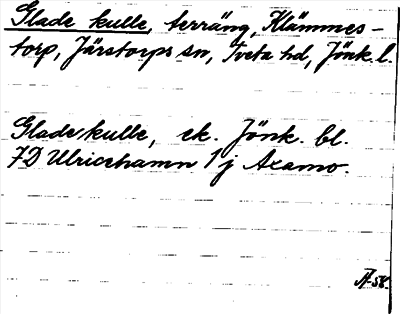 Glade kulle, terräng, Klämmes-
torp, Järstorps sn, Tveta hd, Jönk. l.
Glade kulle, ek. Jönk. bl.
7D Ulricehamn 1 j Axamo.